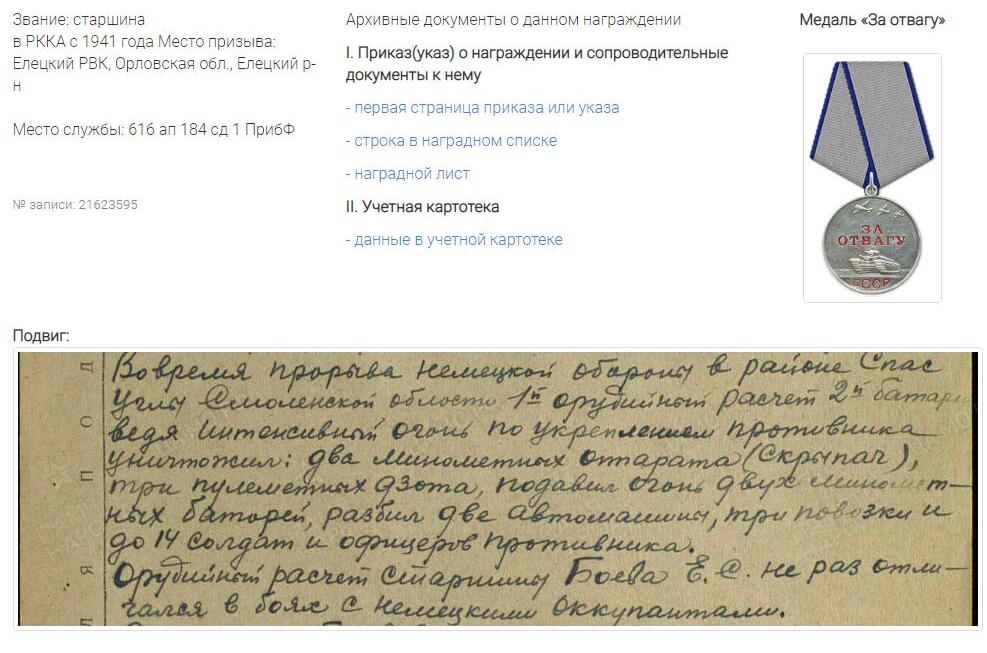 Звание: старшина
в РККА с 1941 года Место призыва:
Елецкий РВК, Орловская обл., Елецкий р-
н
Место службы: 616 ап 184 сд 1 ПрибФ
№ записи: 21623595
Архивные документы о данном награждении
I. Приказ(указ) о награждении и сопроводительные
документы к нему
- первая страница приказа или указа
- строка в наградном списке
- наградной лист
II. Учетная картотека
- данные в учетной картотеке
Медаль «За отвагу»
ЗА
ОТВАГУ
СССР
Подвиг:
Во время прорыва немецкой обороны в районе Спас
Углы Смоленской области 1й орудийный расчет 2й батаре
ведя интенсивный огонь по укреплением противника
уничтожил: два минометных аппарата (Скрыпач),
три пулеметных дзота, подавил огонь двух миномет-
ных батарей, разбил две автомашины, три повозки и
до 14 солдат и офицеров противника.
Орудийный расчет старшины Боева Е.С. не раз отли-
чался в боях с немецкими оккупантами.